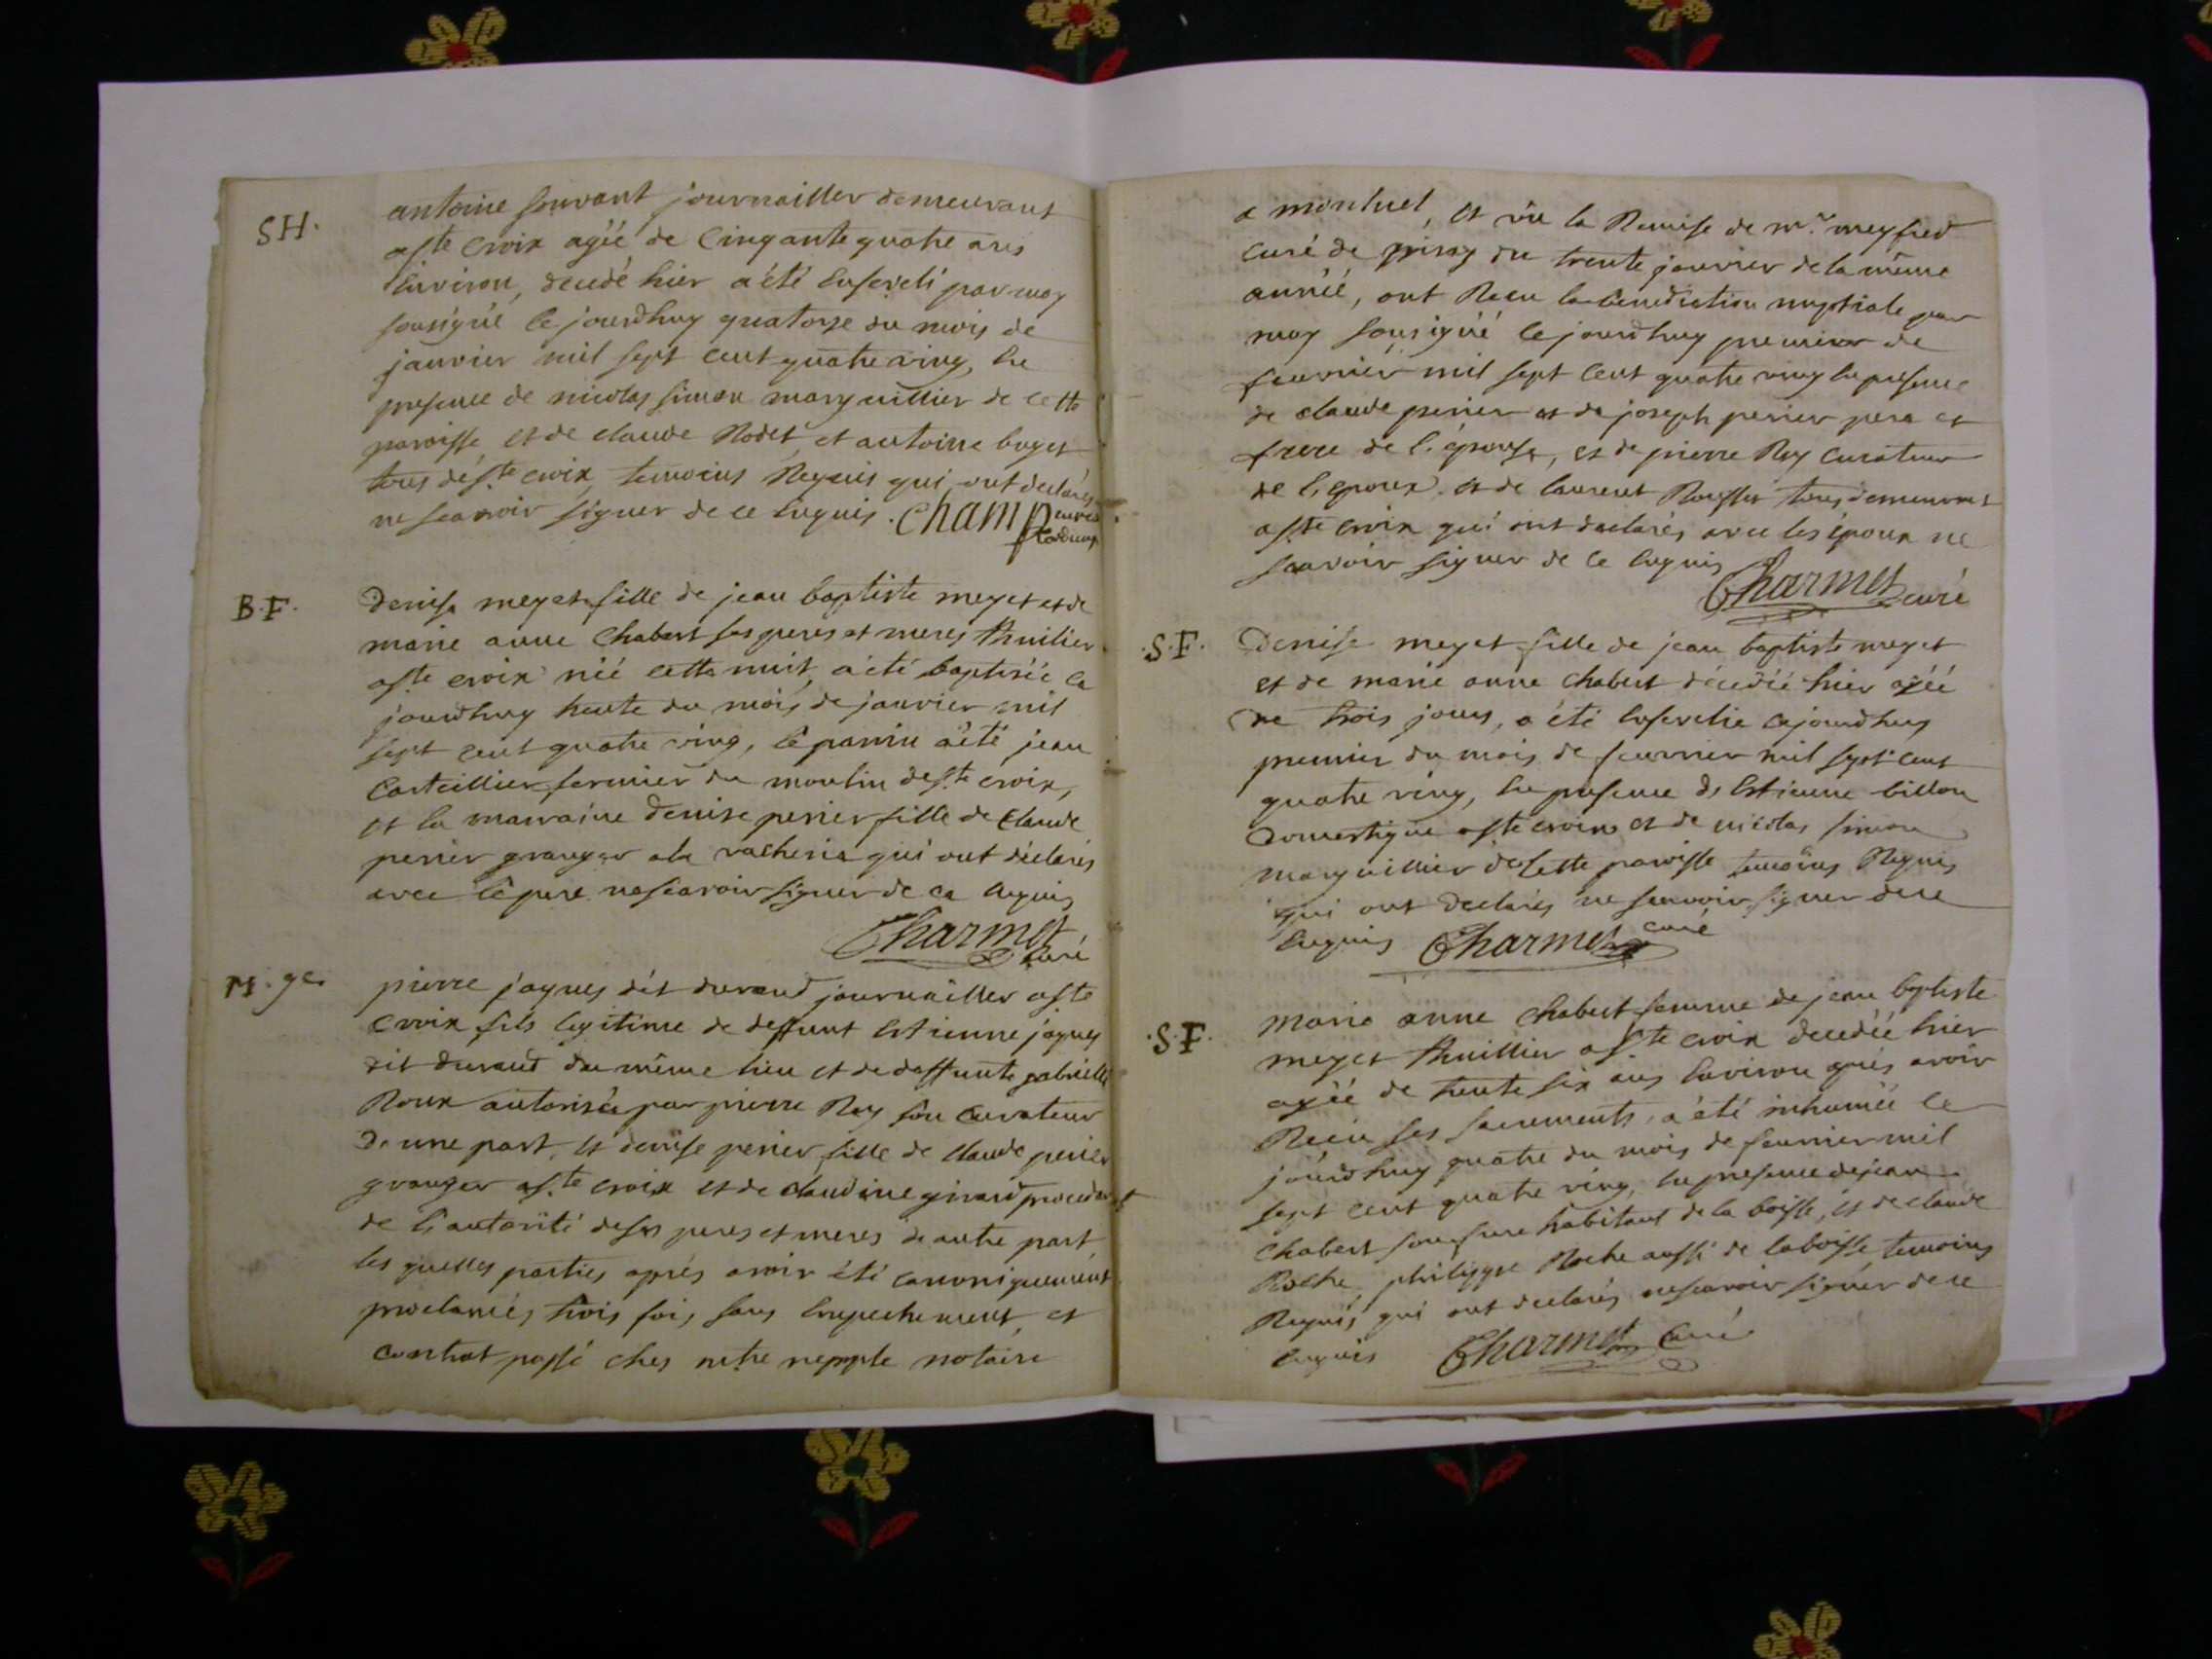 SH.
antoine souvant journaillier demeurant
a ste croix agéé de Cinqante quatre ans
Environ, decedé hier a été Enseveli par moy
sousigné le jourdhuy quatorze du mois de
janvier mil sept cent quatre ving, En
presence de nicolas simon marguillier de cette
paroisse et de claude Rodet, et antoine buget
tous de ste croix, temoins Requis qui ont declarés
ne scavoir signer de ce Enquis. Champ
B.F.
Denise meyet fille de jean baptiste meyet et de
marie anne Chabert ses peres et meres thuilier
a ste croix néé cette nuit, a été baptiséé ce
jourdhuy trente du mois de janvier mil
sept cent quatre ving, le parain a été jean
Cartellier fermier du moulin de ste croix,
et la marraine denise perier fille de Claude
perier granger a la vacherie qui ont déclarés
avec le pere ne scavoir signer de ce Enquis
Charmet
curé
M.ge
pierre jaques dit durand journaillier a ste
croix fils legitime de deffunt Estienne jaques
dit durand du même lieu et de deffunte gabrielle
Roux autorisée par pierre Rey son Curateur
De une part, et denise perier fille de Claude perier
granger a ste croix et de claudine girard procedant
de l'autorité de ses peres et meres de autre part
les quelles parties aprés avoir été canoniquement
proclamés trois fois, sans Empechement, et
contrat passé ches notre notaire
a montluel, et vu la Remise de mr. meyfred
curé de du trente janvier de la même
annéé, ont Recu la benediction nuptiale par
moy sousigné le jourdhuy premier de
feuvrier mil sept cent quatre ving En presence
de claude perier et de joseph perier pere et
frere de l'épouse, et de pierre Rey curateur
de l'epoux et de laurent tous demeurant
a ste croix qui ont declarés avec les époux ne
scavoir signer de ce Enquis
Charmet curé
.S.F.
Denise meyet fille de jean baptiste meyet
et de marie anne chabert décedéé hier agéé
de trois jours, a été Ensevelie cejourdhuy
premier du mois de feuvrier mil sept cent
quatre ving, En presence de Estienne billon
Domestique a ste croix et de nicolas simon
marguillier de cette paroisse temoins Requis
qui ont declarés ne scavoir signer de ce
Enquis Charmet curé
.S.F.
marie anne chabert femme de jean baptiste
meyet thuillier a ste croix decedéé hier
agéé de trente six ans Environ aprés avoir
Reçu ses sacrements, a été inhuméé ce
jourdhuy quatre du mois de feuvrier mil
sept cent quatre ving, En presence de jean
Chabert son frere habitant de la boisse, et de claude
Roche, philippe Roche aussi de la boisse, temoins
Requis qui ont declarés ne scavoir signer de ce
Enquis Charmet Curé